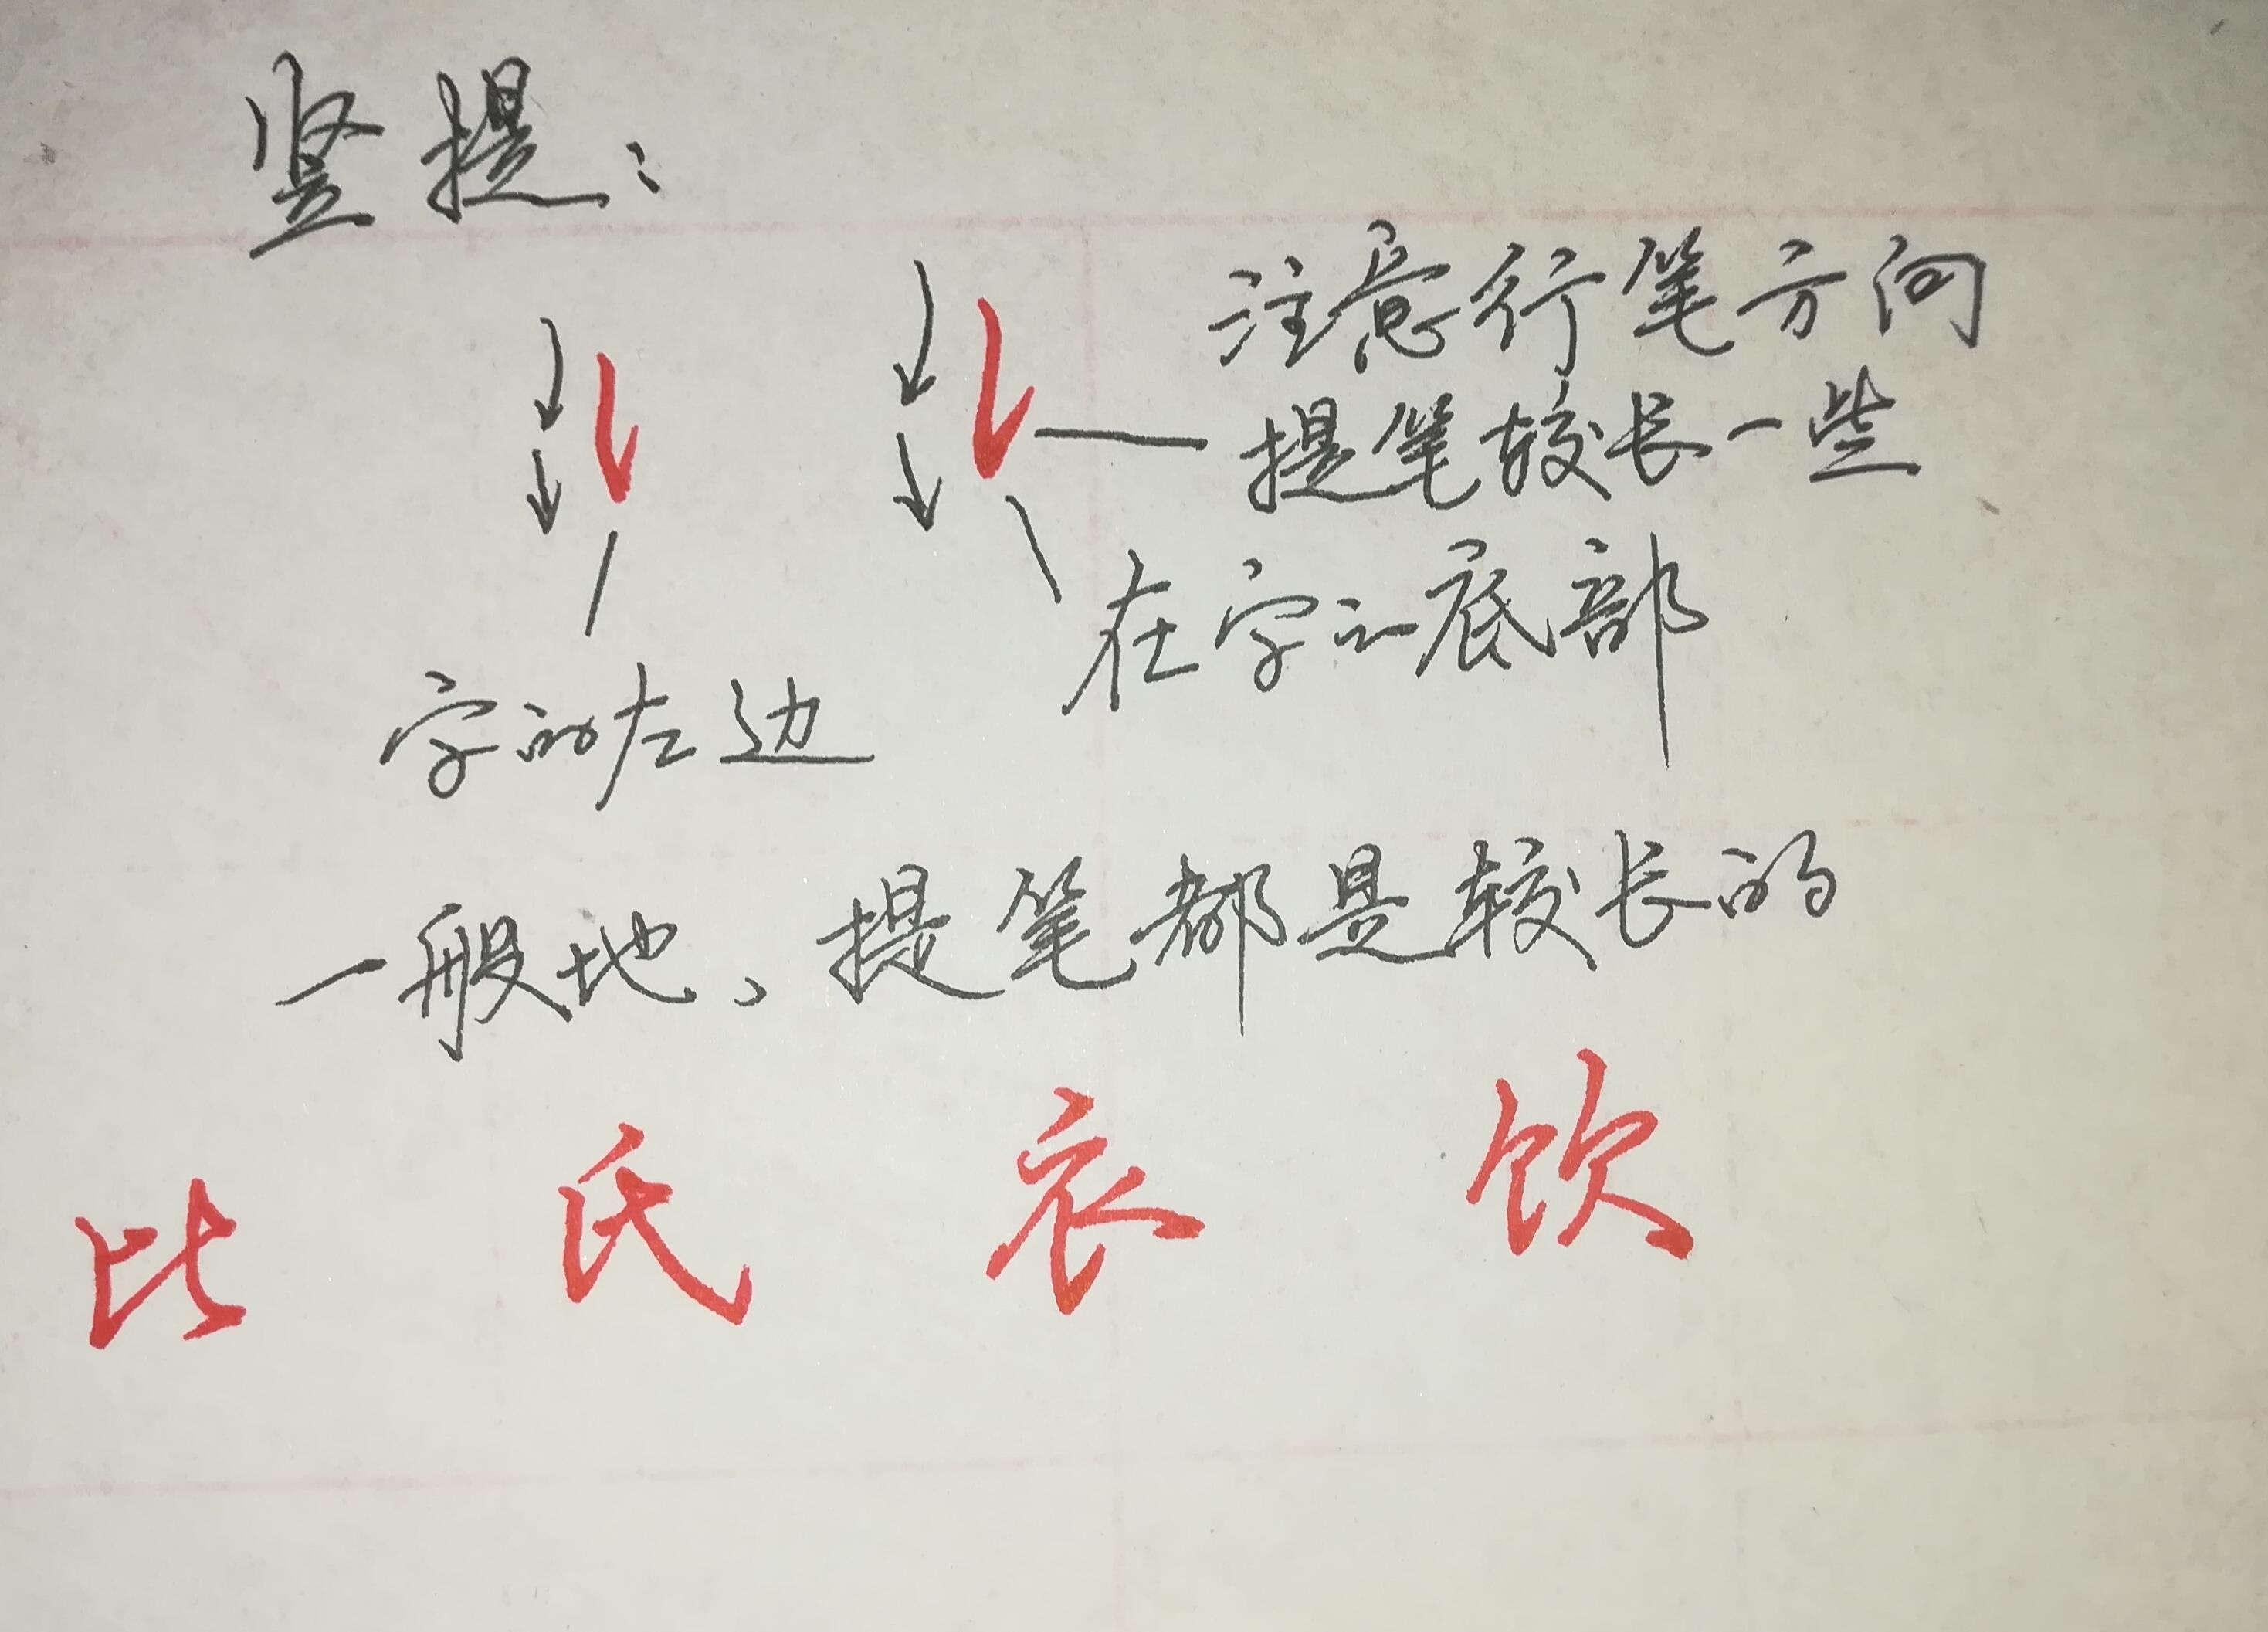 竖提:
注意行笔方向
提笔较长一些
在字的底部
字的左边
一般地,提笔都是较长的
比 氏 衣 饮